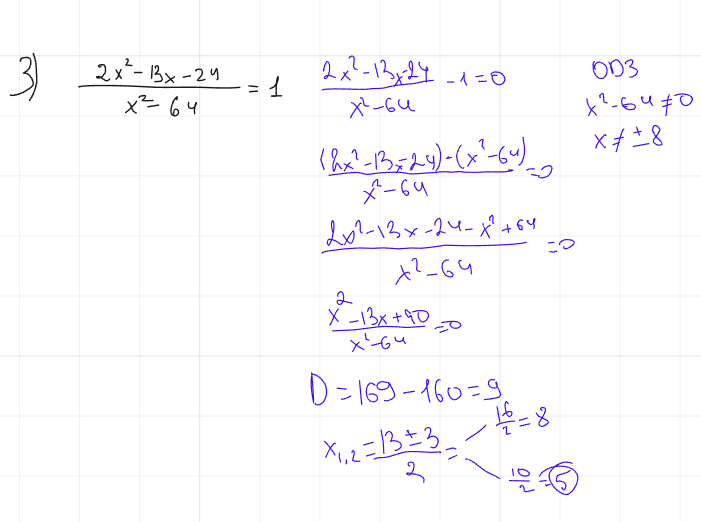 3) (2x²-13x-24)/(x²-64) = 1
(2x²-13x-24)/(x²-64) - 1 = 0
((2x²-13x-24)-(x²-64))/(x²-64) = 0
(2x²-13x-24-x²+64)/(x²-64) = 0
(x²-13x+40)/(x²-64) = 0
D = 169 - 160 = 9
x₁,₂ = (13±3)/2 =
16/2 = 8
10/2 = 5
ОДЗ
x²-64 ≠ 0
x ≠ ±8